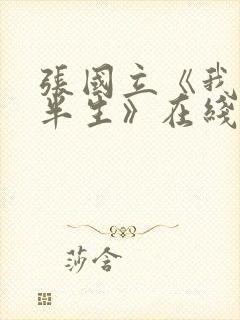 張國立《我
半生》在綫
莎舍